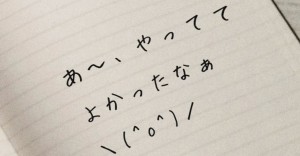 あ〜、やってて
よかったなぁ
\(^o^)/